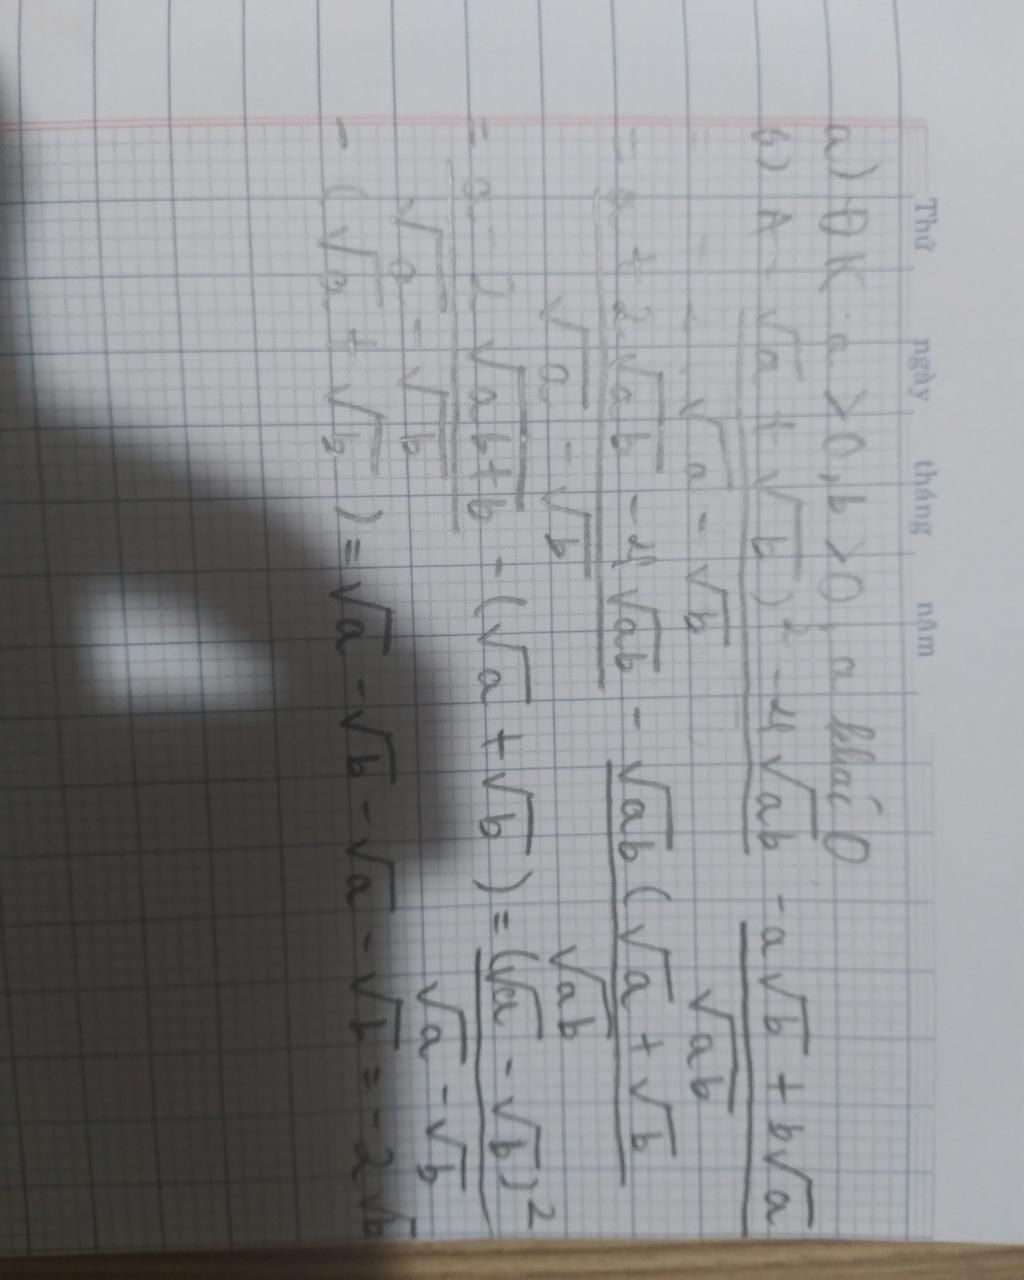 Thứ ngày tháng năm
a) ĐK: a > 0, b > 0, a khác 0
b) A = √a + √b)² - 4√ab - a√b + b√a
√a - √b √ab
= a + 2√ab - 4√ab - √ab (√a + √b
√a - √b √ab
= a - 2√ab + b - (√a + √b) = (√a - √b)²
√a - √b √a - √b
- (√a + √b) = √a - √b - √a - √b = -2√b